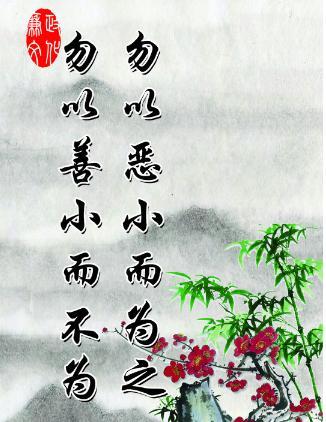 勿以恶小而为之
勿以善小而不为
廉政
文化